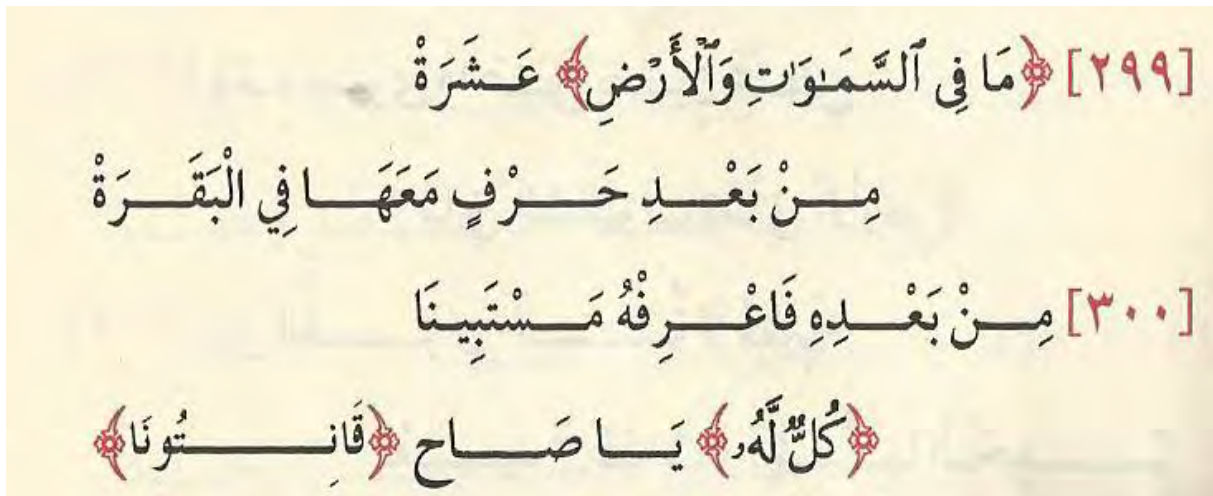 [٢٩٩] ﴿مَا فِى ٱلسَّمَـٰوَٰتِ وَٱلْأَرْضِ﴾ عَـشَرَةْ
مِـنْ بَعْـدِ حَـرْفٍ مَعَهَـا فِي الْبَقَـرَةْ
[٣٠٠] مِـنْ بَعْـدِهِ فَاعْـرِفْهُ مَـسْتَبِينَا
﴿كُلٌّ لَّهُۥ﴾ يَـا صَـاح ﴿قَانِـتُونَا﴾